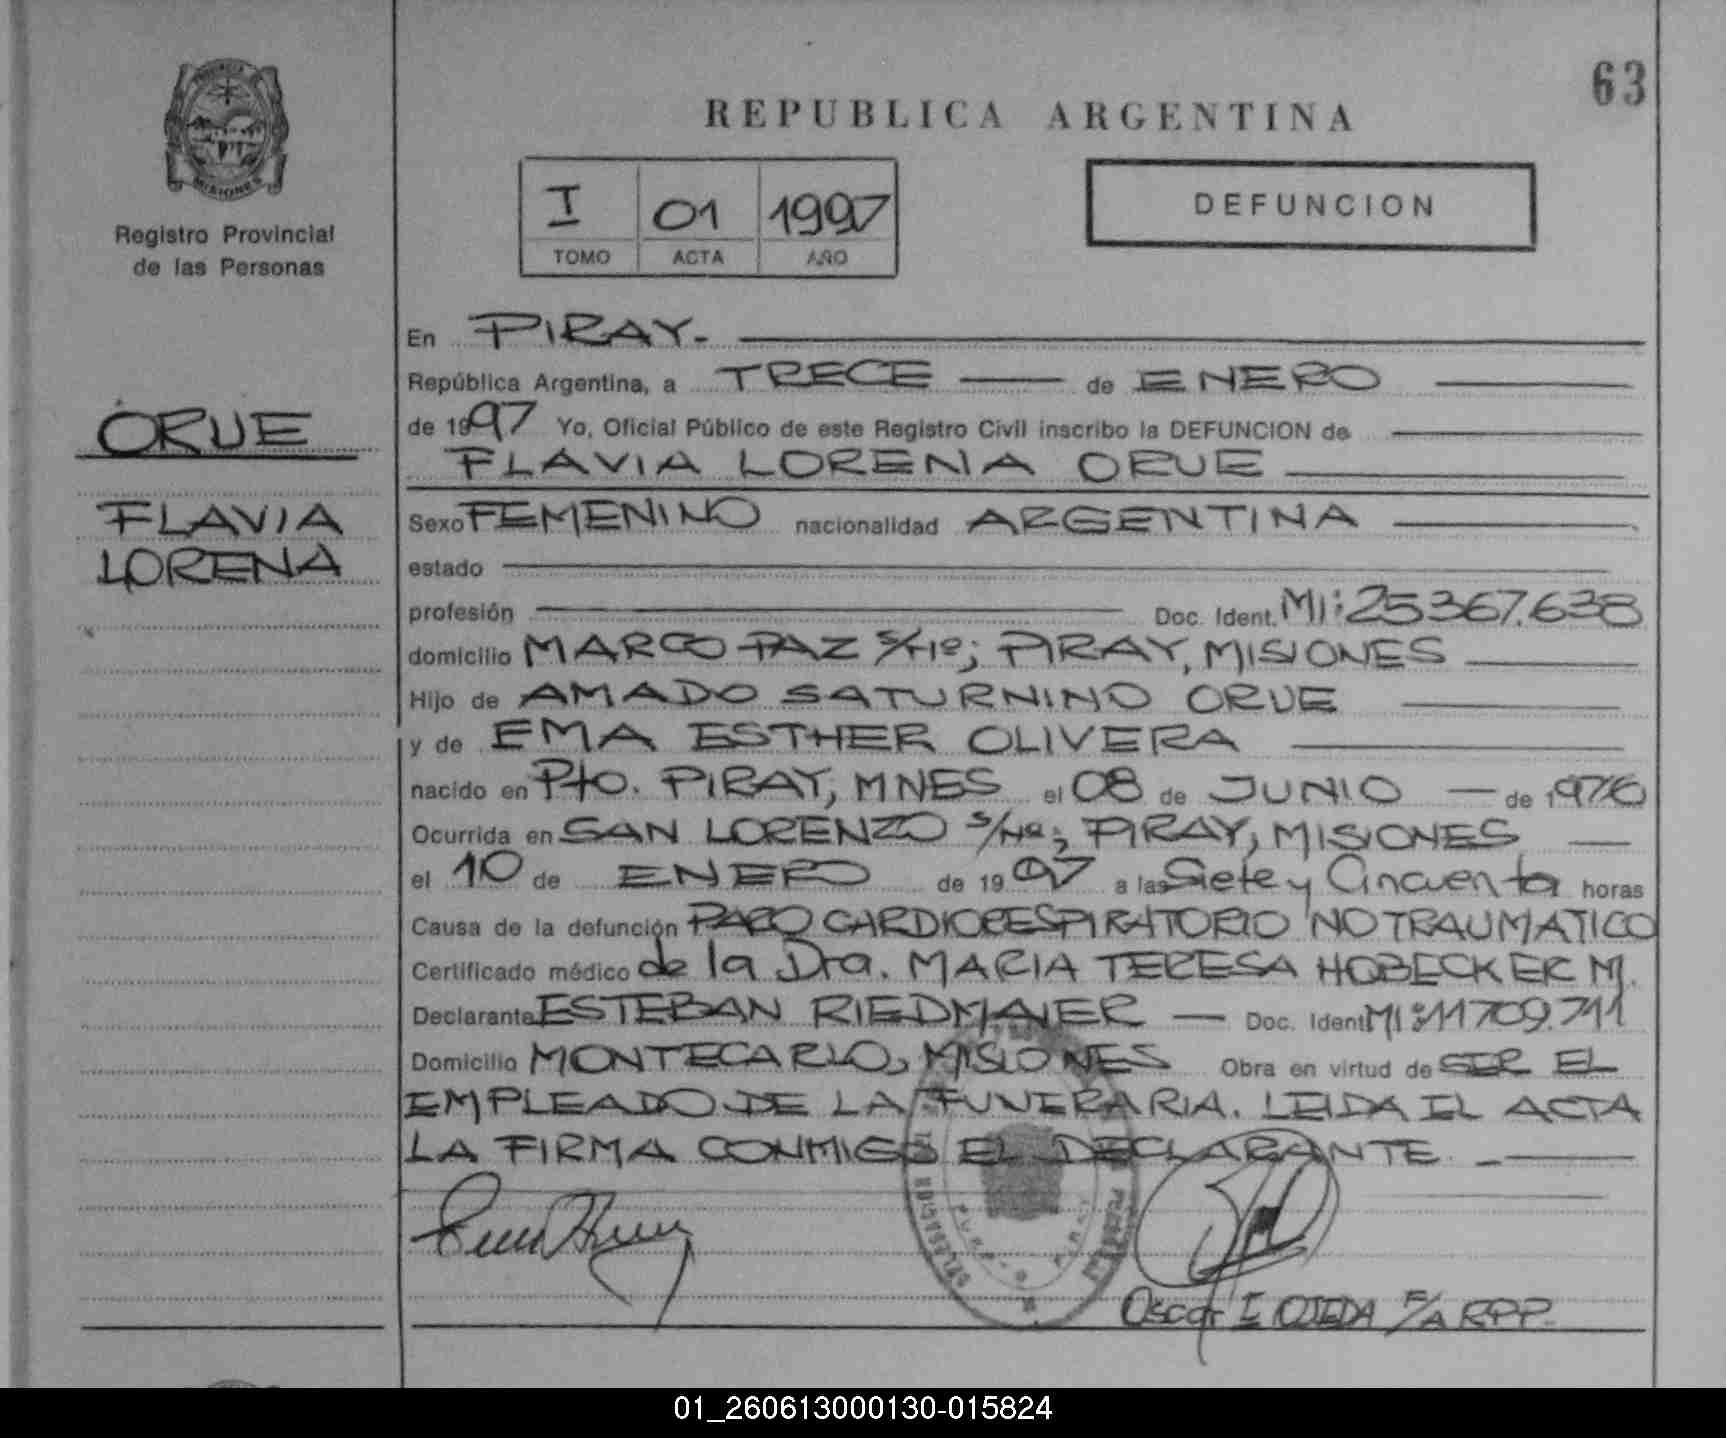 63
REPUBLICA ARGENTINA
PROVINCIA DE
MISIONES
Registro Provincial
de las Personas
I 01 1997
TOMO ACTA AÑO
DEFUNCION
ORUE
FLAVIA
LORENA
En PIRAY.
República Argentina, a TRECE de ENERO
de 1997 Yo, Oficial Público de este Registro Civil inscribo la DEFUNCION de
FLAVIA LORENA ORUE
Sexo FEMENINO nacionalidad ARGENTINA
estado
profesión Doc. Ident. MI: 25367.638
domicilio MARCO PAZ S/Nº; PIRAY, MISIONES
Hijo de AMADO SATURNINO ORUE
y de EMA ESTHER OLIVERA
nacido en Pto. PIRAY, MNES el 08 de JUNIO de 1976
Ocurrida en SAN LORENZO S/Nº; PIRAY, MISIONES
el 10 de ENERO de 1997 a las Siete y Cincuenta horas
Causa de la defunción PARO CARDIORESPIRATORIO NO TRAUMATICO
Certificado médico de la Dra. MARIA TERESA HOBECKER M.
Declarante ESTEBAN RIEDMAIER Doc. Ident MI: 11709.711
Domicilio MONTECARLO, MISIONES Obra en virtud de SER EL
EMPLEADO DE LA FUNERARIA. LEIDA EL ACTA
LA FIRMA CONMIGO EL DECLARANTE.
Oscar I OJEDA F/A RPP.
01_260613000130-015824